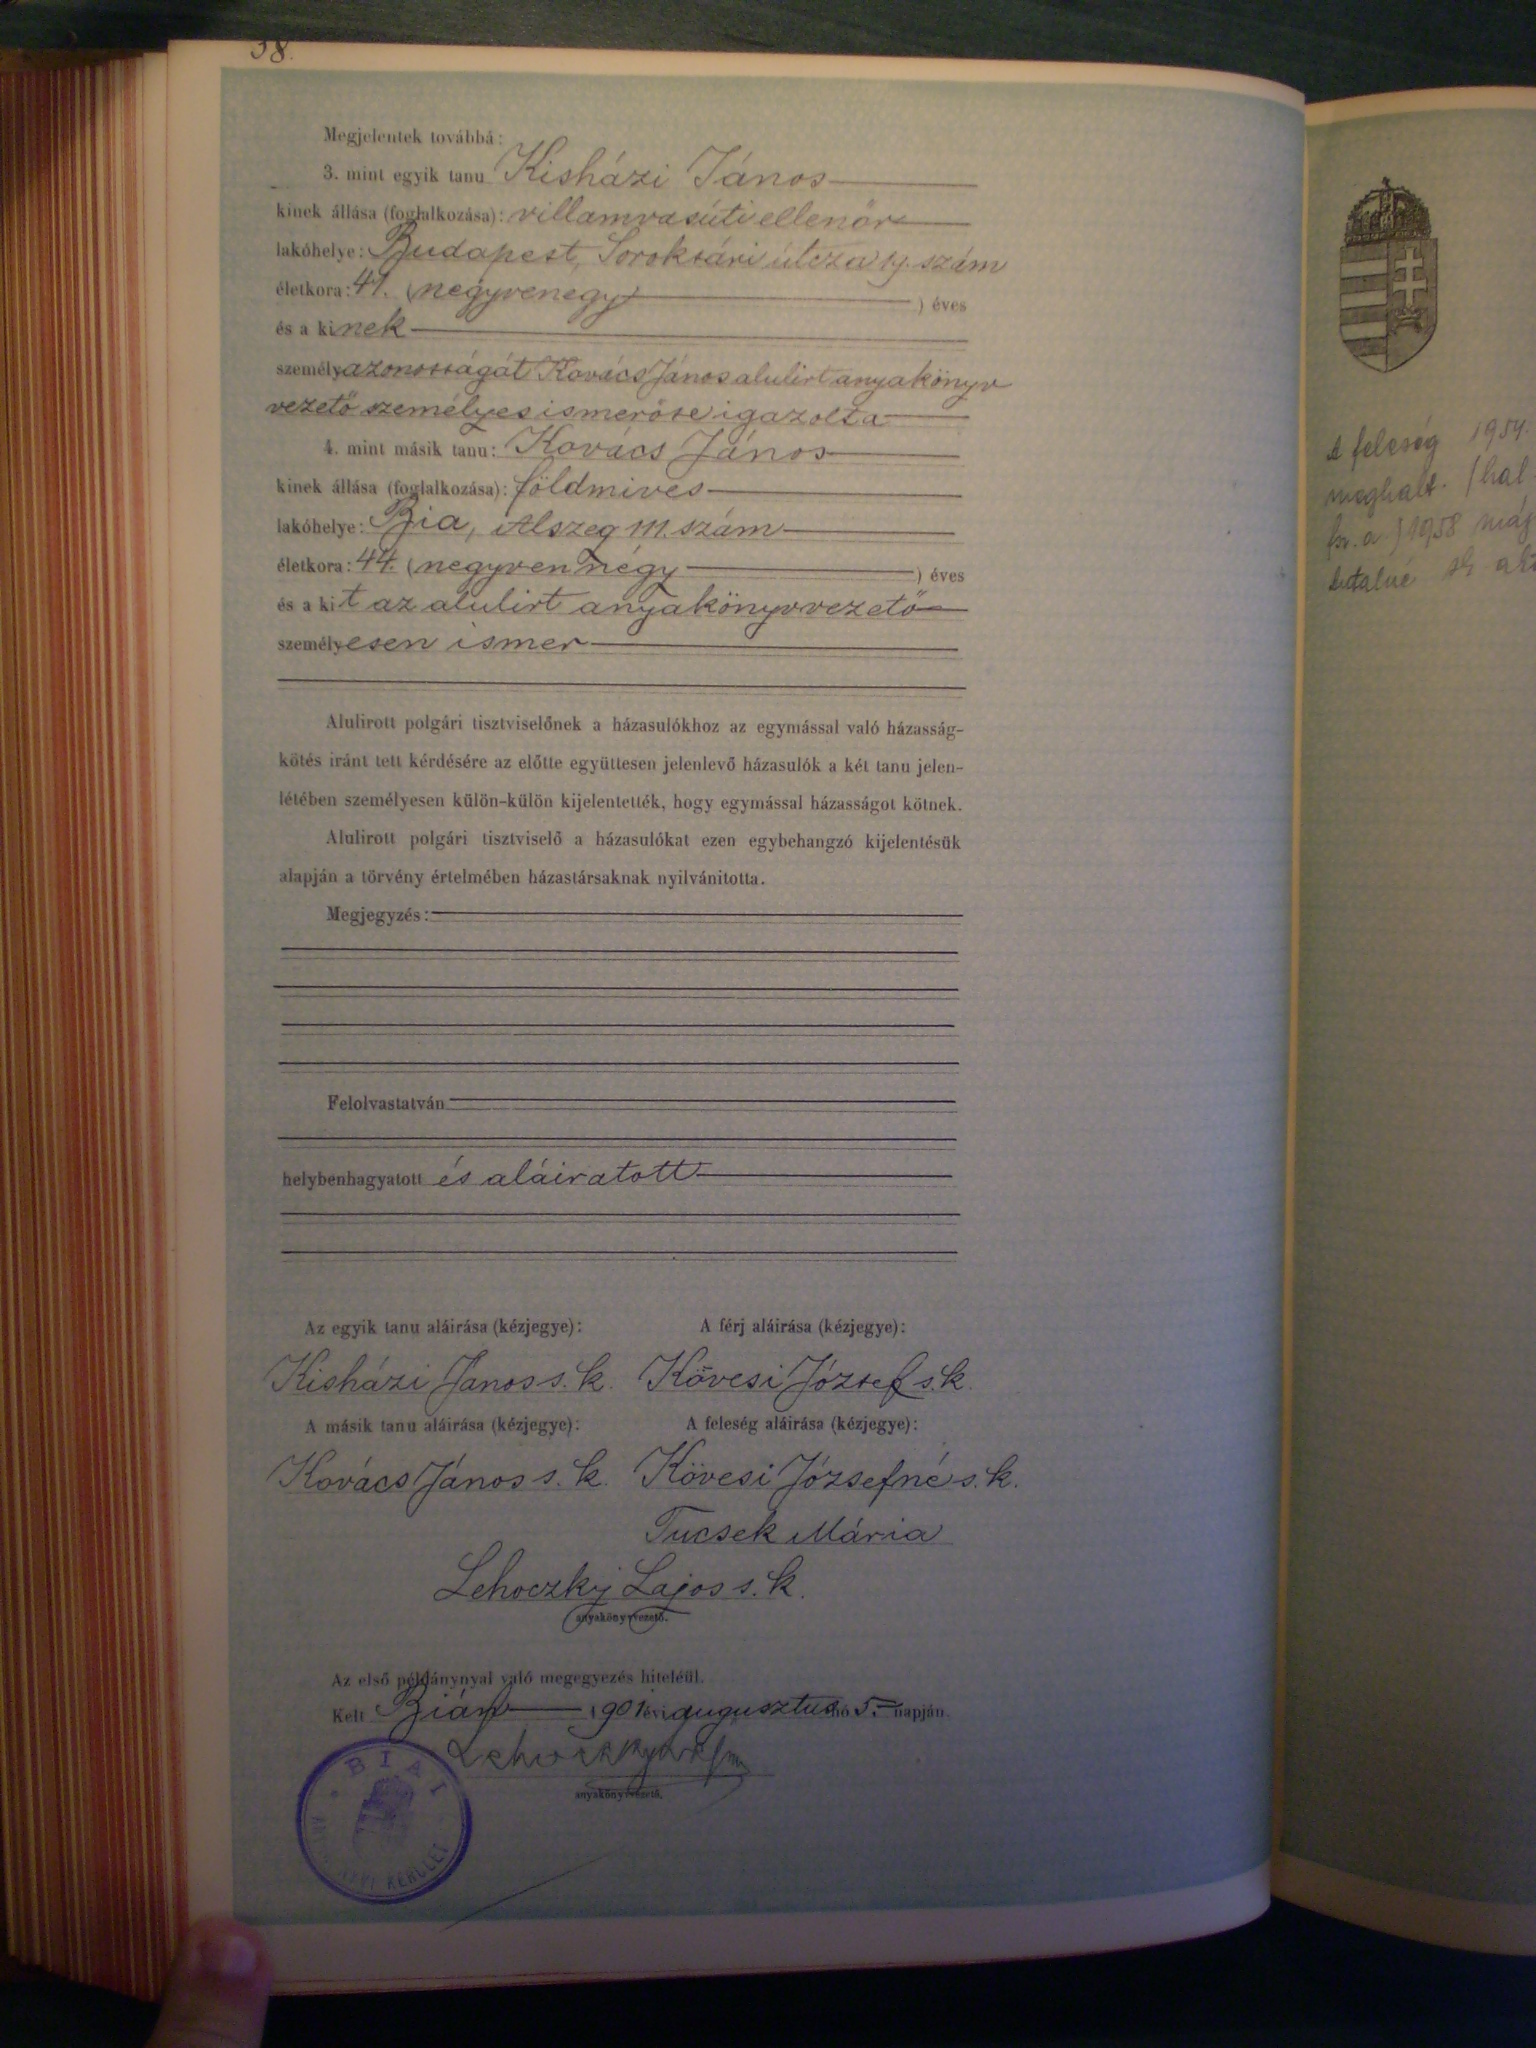 38.
Megjelentek továbbá:
3. mint egyik tanu Kisházi János
kinek állása (foglalkozása): villamvasúti ellenőr
lakóhelye: Budapest, Soroksári útcza 19. szám
életkora: 41. (negyvenegy) éves
és a kinek
személyazonosságát Kovács János alulirt anyakönyv
vezető személyes ismerőse igazolta
4. mint másik tanu: Kovács János
kinek állása (foglalkozása): földmives
lakóhelye: Bia, Alszeg 111. szám
életkora: 44. (negyvennégy) éves
és a kit az alulirt anyakönyvvezető
személyesen ismer
Alulirott polgári tisztviselőnek a házasulókhoz az egymással való házasság-
kötés iránt tett kérdésére az előtte együttesen jelenlevő házasulók a két tanu jelen-
létében személyesen külön-külön kijelentették, hogy egymással házasságot kötnek.
Alulirott polgári tisztviselő a házasulókat ezen egybehangzó kijelentésük
alapján a törvény értelmében házastársaknak nyilvánitotta.
Megjegyzés:
Felolvastatván
helybenhagyatott és aláiratott
Az egyik tanu aláirása (kézjegye): A férj aláirása (kézjegye):
Kisházi János s. k. Kövesi József s. k.
A másik tanu aláirása (kézjegye): A feleség aláirása (kézjegye):
Kovács János s. k. Kövesi Józsefné s. k.
Tucsek Mária
Lehoczky Lajos s. k.
anyakönyvvezető.
Az első példánynyal való megegyezés hiteléül.
Kelt Bián 1901 évi augusztus hó 5. napján.
Lehoczky
anyakönyvvezető.
BIAI
KERÜLET
A feleség 1954.
meghalt. (hal
1958 máj